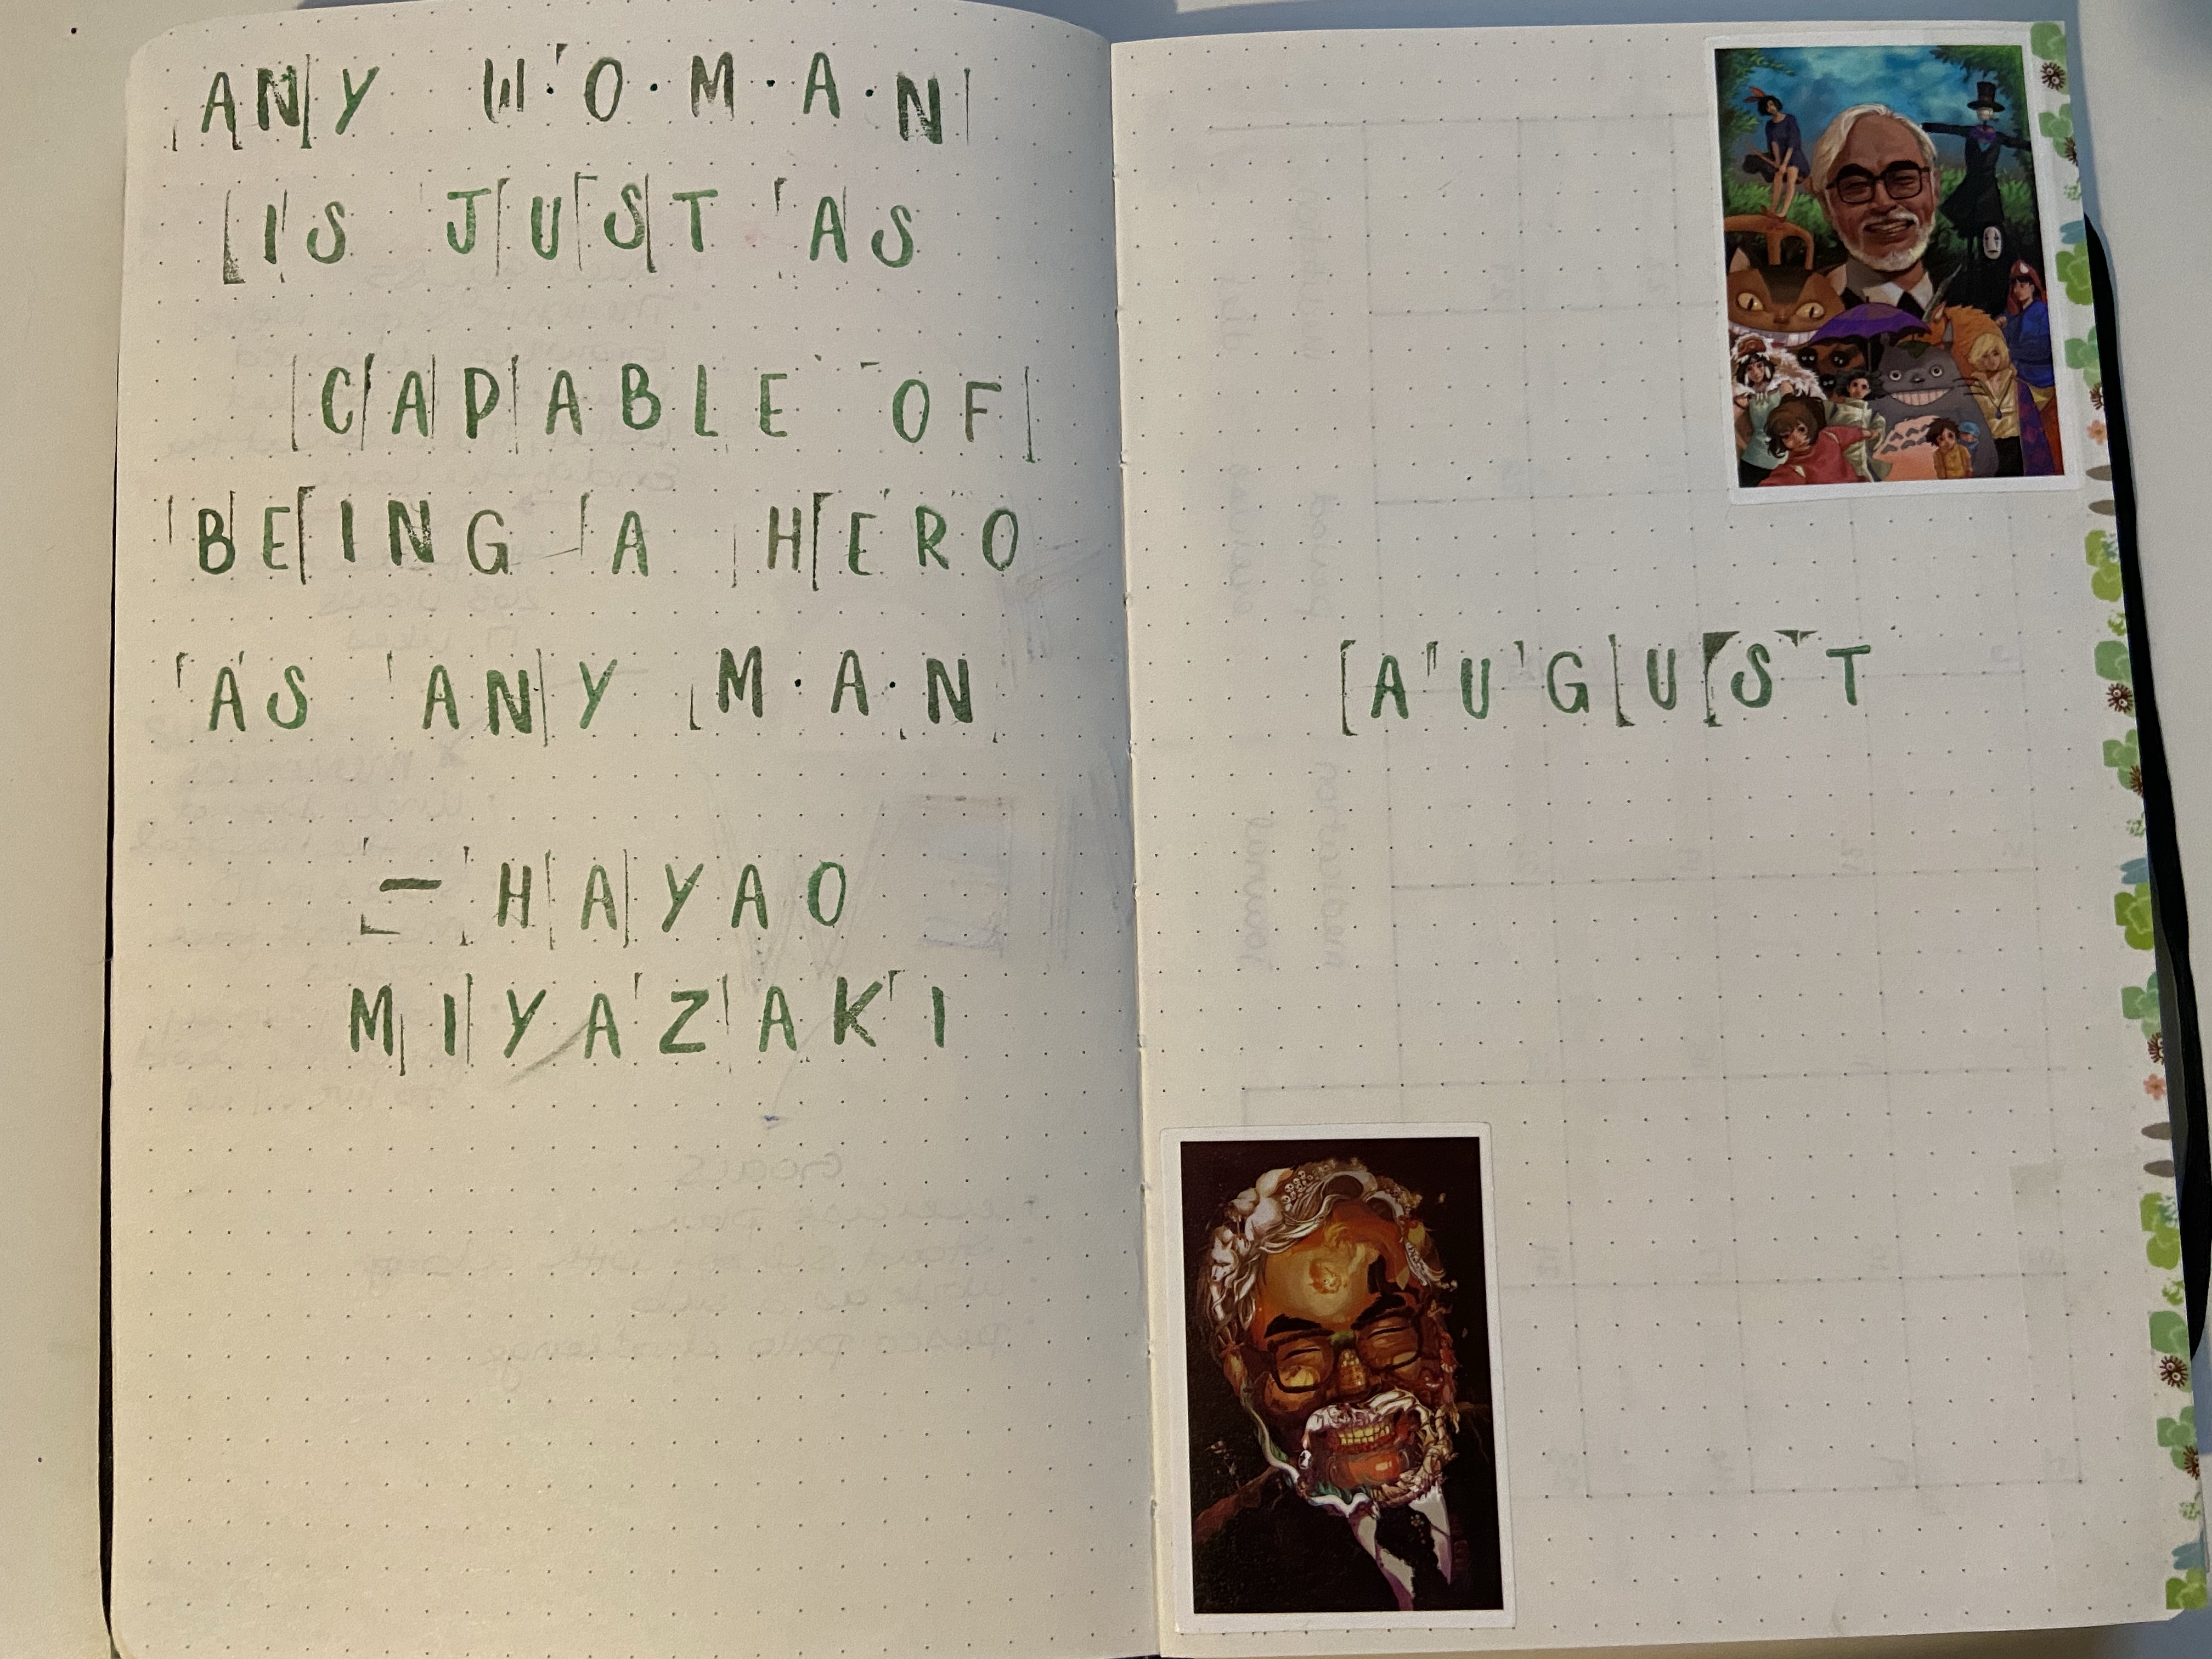 ANY W·O·M·A·N
IS JUST AS
CAPABLE OF
BEING A HERO
AS ANY M·A·N
– HAYAO
MIYAZAKI
AUGUST